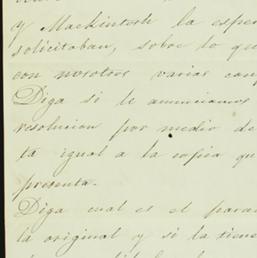 y Mackintosh la espe
solicitaban, sobre lo qu
con nosotros varias con
Diga si le anunciamos
resolucion por medio de
ta igual a la copia qu
presenta.
Diga cual es el para
la original y si la tiene